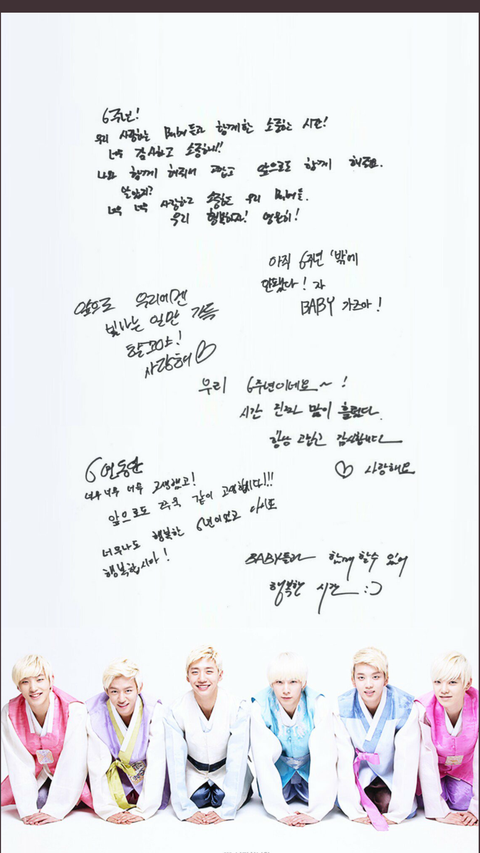 6주년!
우리 사랑하는 BABY들과 함께한 소중한 시간!
너무 감사하고 소중해!!
나와 함께 해줘서 고맙고 앞으로도 함께 해줘요.
알았지?
너무 너무 사랑하고 소중한 우리 BABY들.
우리 행복하자! 영원히!
아직 6주년 '밖'에
안됐다! 자
BABY 가즈아!
앞으로 우리에겐
빛나는 일만 가득
할꺼야!
사랑해♡
우리 6주년이네요~!
시간 진짜 많이 흘렀다.
항상 고맙고 감사합니다
♡ 사랑해요
6년동안
너무너무 너무 고생했고!
앞으로도 쭉 같이 고생합시다!!!
너무나도 행복한 6년이었고 앞으로도
행복합시다!
BABY들과 함께 할수 있어
행복한 시간 :)